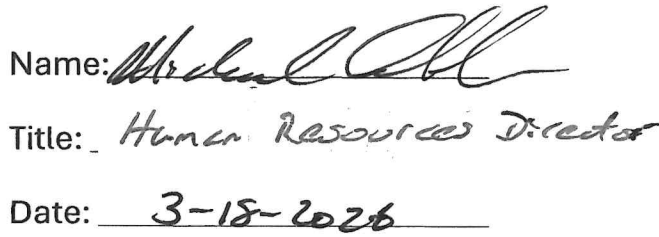 Name: Michael
Title: Human Resources Director
Date: 3-18-2026